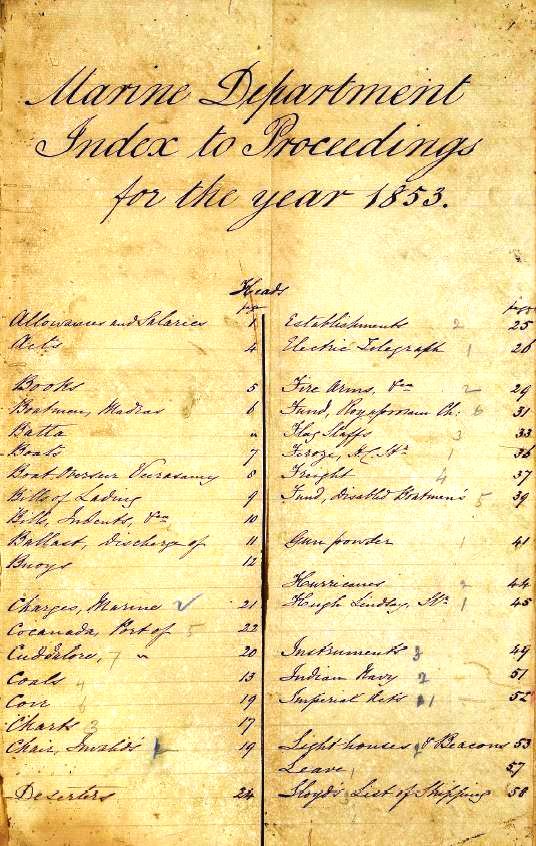 1
Marine Department
Index to Proceedings
for the year 1853.
Heads
page
Allowances and Salaries 1
Acts 4
Books 5
Boatmen, Madras 6
Batta "
Boats 7
Boat Overseer Veerasamy 8
Bills of Lading 9
Bills, Indents, &ca 10
Ballast, discharge of 11
Buoys 12
Charges, Marine 21
Cocanada, Port of 5 22
Cuddalore, 7 " 20
Coals 4 13
6 19
Charts 3 17
Chair, Invalids 19
Deserters 24
page
Establishments 2 25
Electric Telegraph 1 26
Fire Arms, &ca 2 29
Fund, Ch: 6 31
Flag Staffs 3 33
Feroze, H.C. Sr 1 36
Freight 4 37
Fund, disabled Boatmen's 5 39
Gun powder 1 41
Hurricanes 2 44
Hugh Lindsay, Sr 1 45
Instruments 3 49
Indian Navy 2 51
Imperial Acts 1 52
Light houses & Beacons 53
Leave 57
Lloyd's List of Shipping 58